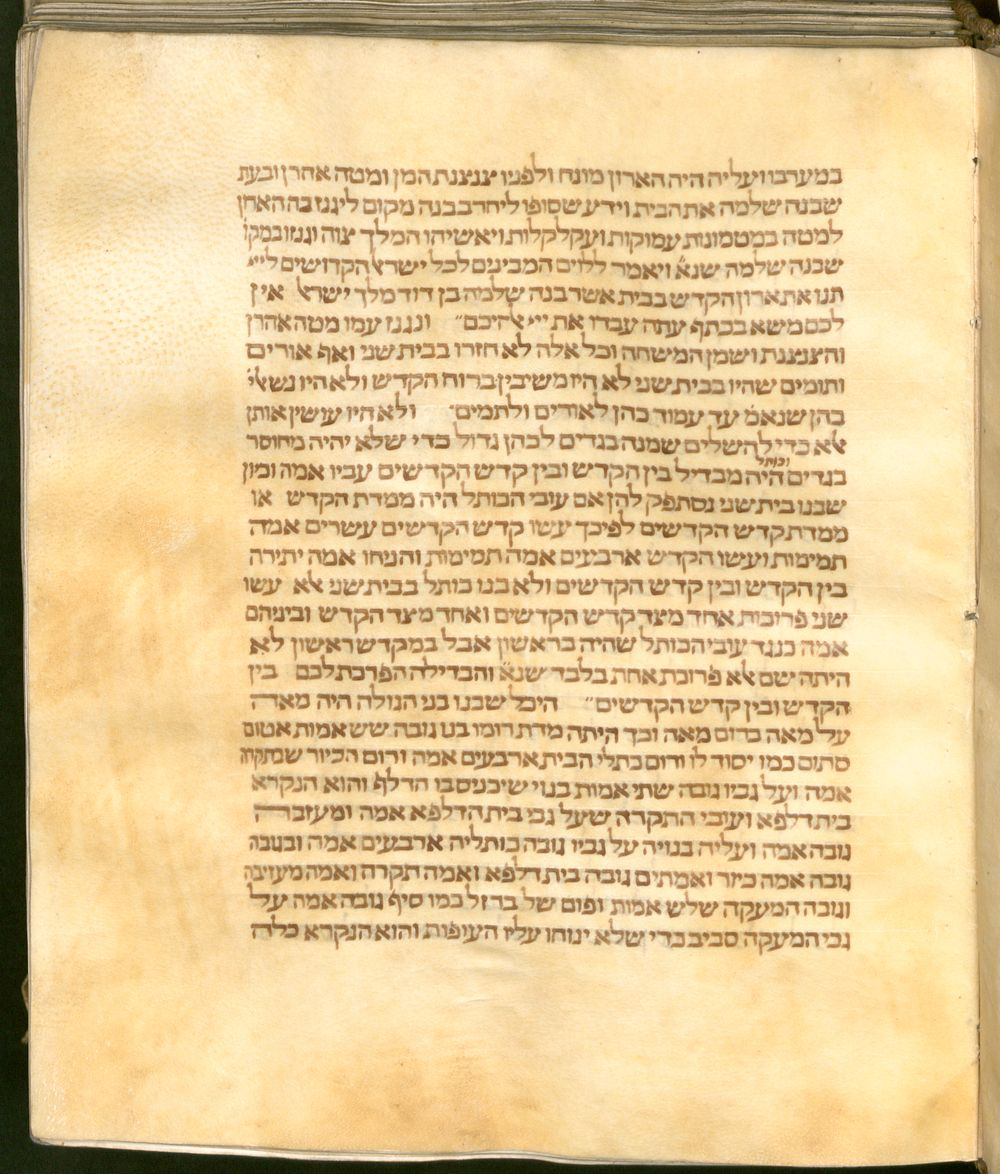 במערבו ועליה היה הארון מונח ולפניו צנצנת המן ומטה אהרן ובעת
שבנה שלמה את הבית וידע שסופו ליחרב בנה מקום ליגנז בה הארון
למטה במטמוניות עמוקות ועקלקלות ויאשיהו המלך צוה וגנזו במקו'
שבנה שלמה שנא' ויאמר ללוים המבינים לכל ישראל הקדושים לייי
תנו את ארון הקדש בבית אשר בנה שלמה בן דוד מלך ישראל אין
לכם משא בכתף עתה עבדו את ייי אלהיכם״ ונגנז עמו מטה אהרן
והצנצנת ושמן המשחה וכל אלה לא חזרו בבית שני ואף אורים
ותומים שהיו בבית שני לא היו משיבין ברוח הקדש ולא היו נשאלי'
בהן שנאמ' עד עמוד כהן לאורים ולתמים׳ ולא היו עושין אותן
אלא כדי להשלים שמנה בגדים לכהן גדול כדי שלא יהיה מחוסר
בגדים וכותל היה מבדיל בין הקדש ובין קדש הקדשים עביו אמה וכיון
שבנו בית שני נסתפק להן אם עובי הכותל היה ממדת הקדש או
ממדת קדש הקדשים לפיכך עשו קדש הקדשים עשרים אמה
תמימות ועשו הקדש ארבעים אמה תמימות והניחו אמה יתירה
בין הקדש ובין קדש הקדשים ולא בנו כותל בבית שני אלא עשו
שני פרוכות אחד מצד קדש הקדשים ואחד מצד הקדש וביניהם
אמה כנגד עובי הכותל שהיה בראשון אבל במקדש ראשון לא
היתה שם אלא פרוכת אחת בלבד שנא' והבדילה הפרכת לכם בין
הקדש ובין קדש הקדשים״ היכל שבנו בני הגולה היה מאה
על מאה ברום מאה וכך היתה מדת רומו בנו גובה שש אמות אטום
סתום כמו יסוד לו ורום כתלי הבית ארבעים אמה ורום הכיור שבתקרה
אמה ועל גביו גובה שתי אמות בנוי שיכניס בו הדלף והוא הנקרא
בית דלפא ועובי התקרה שעל גבי בית הדלפא אמה ומעזבה
גובה אמה ועליה בנויה על גביו גובה כותליה ארבעים אמה ובגובה
גובה אמה כיור ואמתים גובה בית דלפא ואמה תקרה ואמה מעזיבה
וגובה המעקה שלש אמות ופום של ברזל כמו סיף גובה אמה על
גבי המעקה סביב כדי שלא ינוחו עליו העופות והוא הנקרא כלה